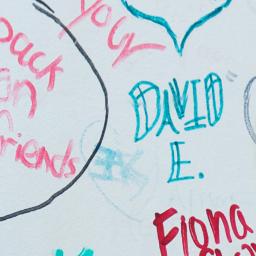 your
back
on
friends
DAVID
E.
Fiona